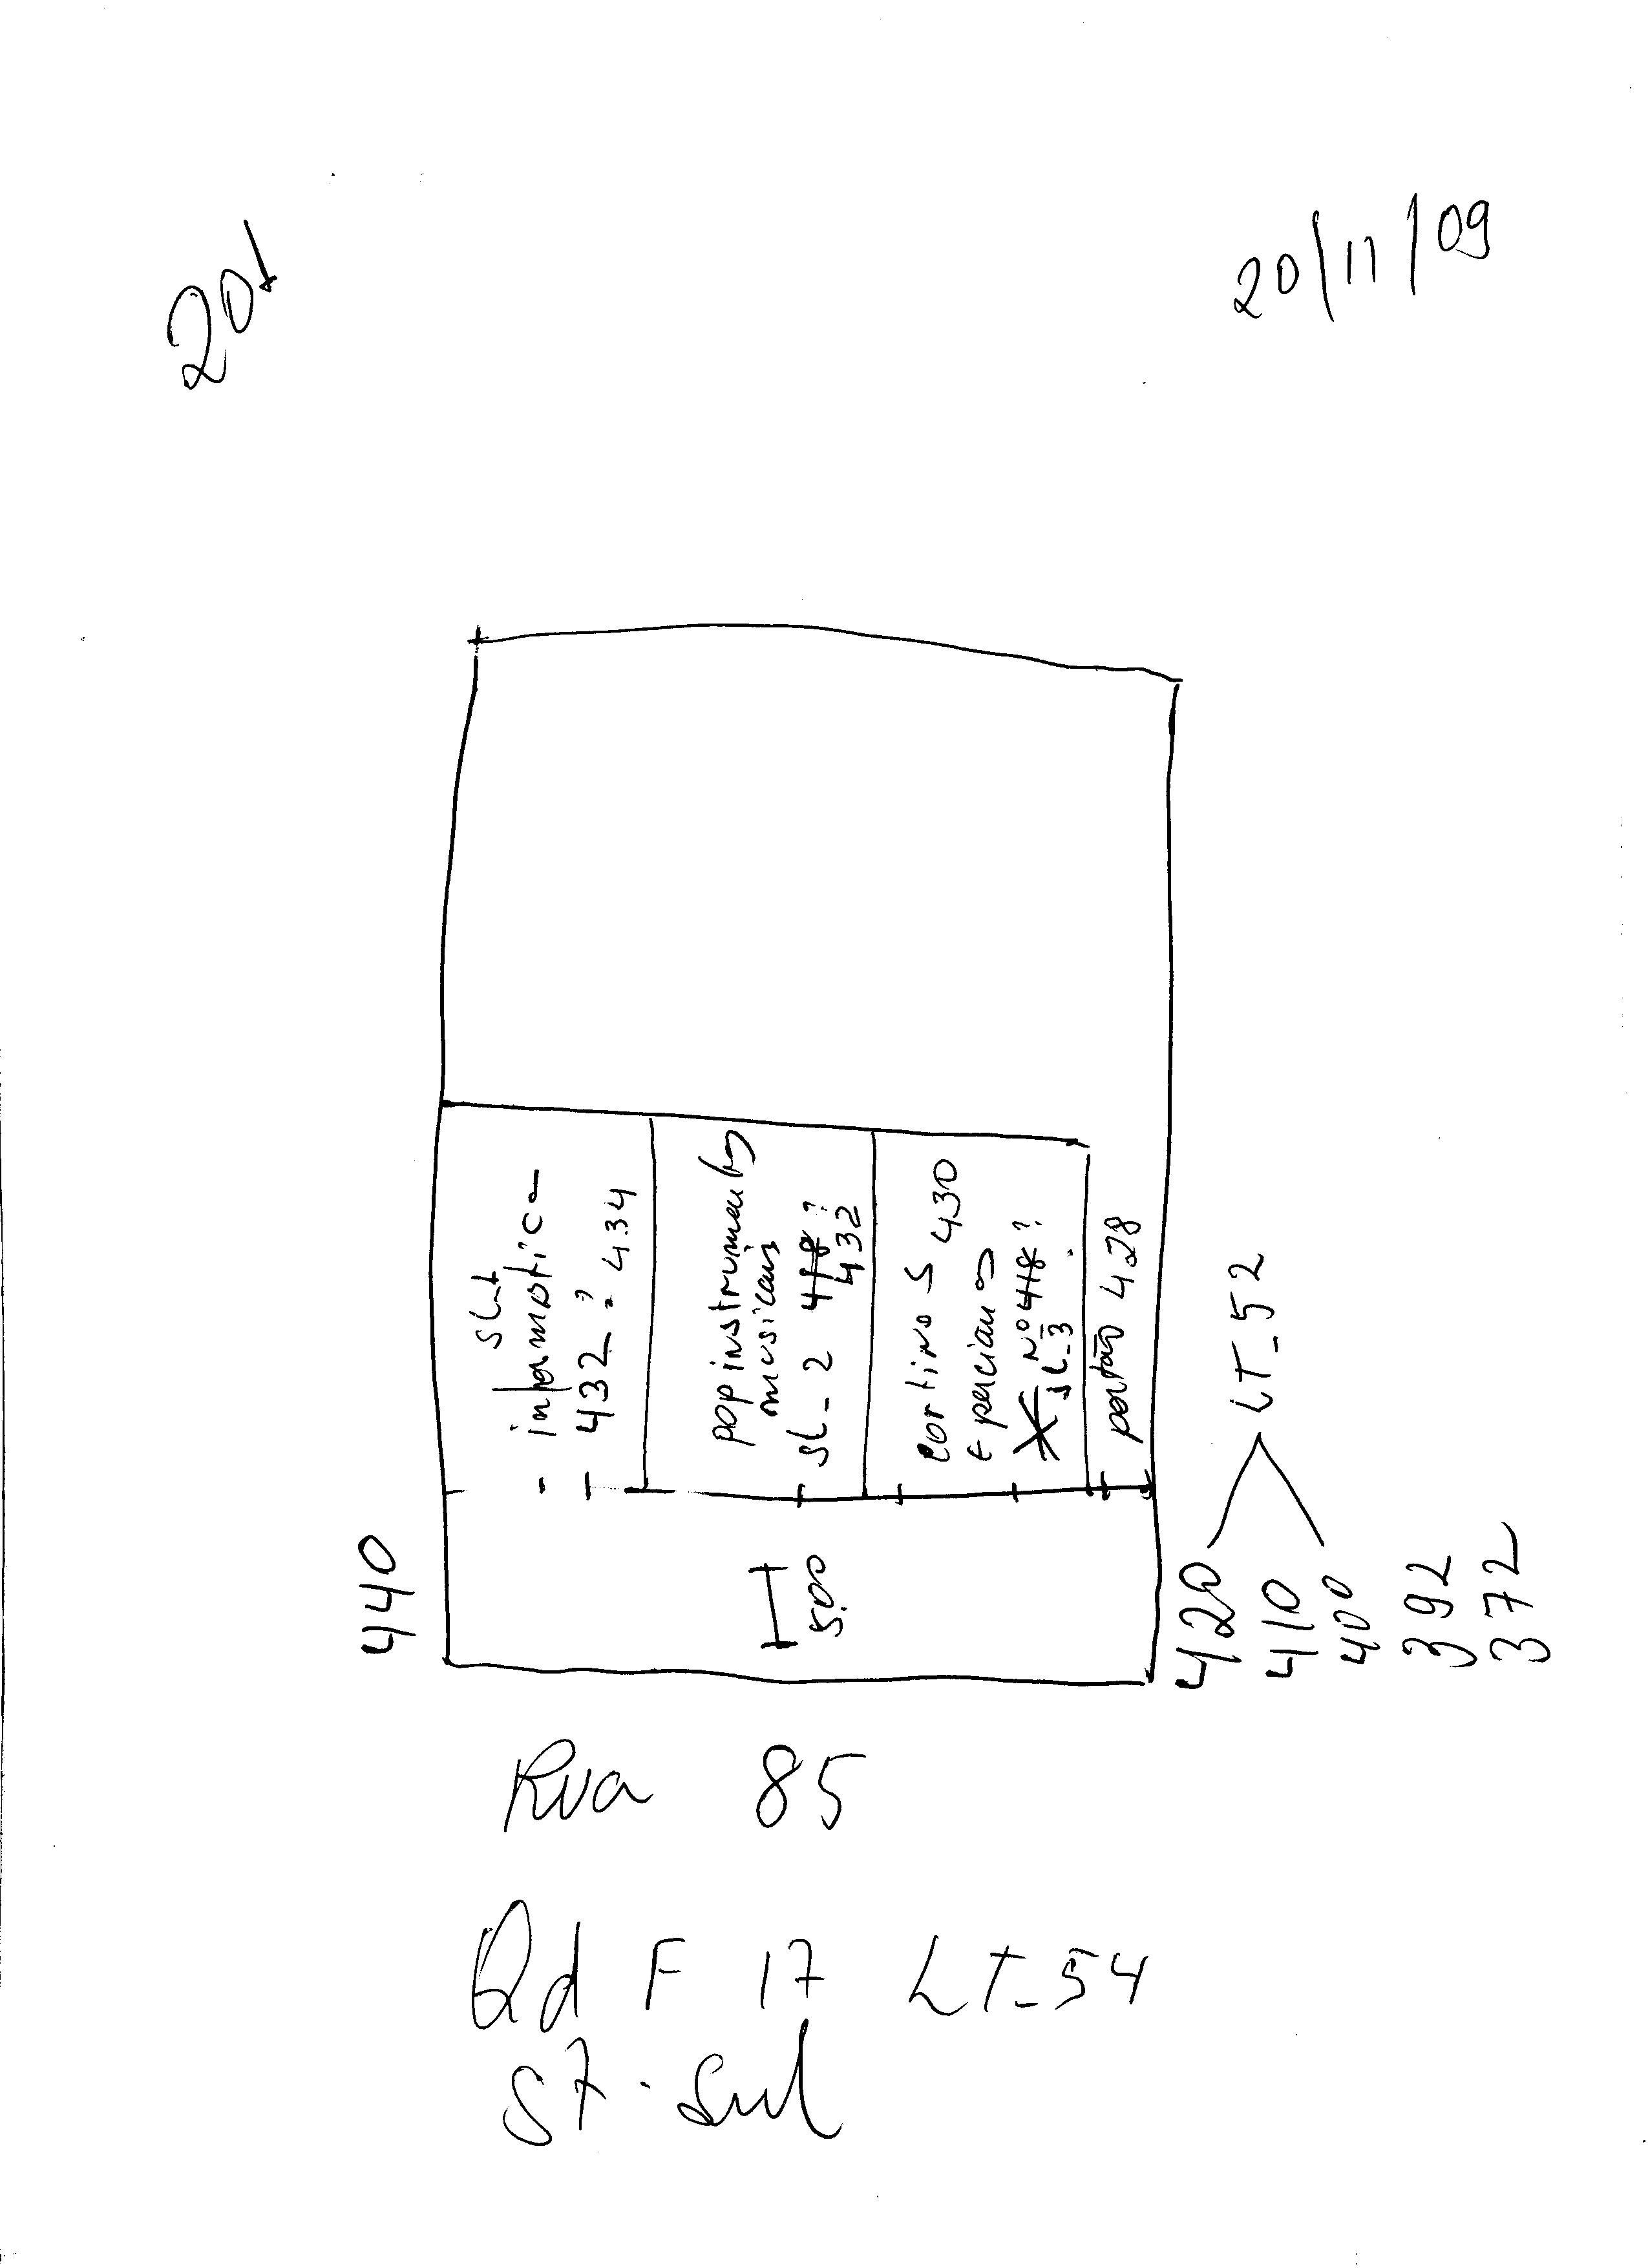 201
20/11/09
440
SL-1
informatica
432? 434
pop instrumentos
musicais
SL-2 418?
432
cortinas 430
e percianas
Nº 418?
SL-3
portão 428
5,00
420
410
400
392
372
LT-52
Rua 85
Qd F 17 LT-54
ST. Sul